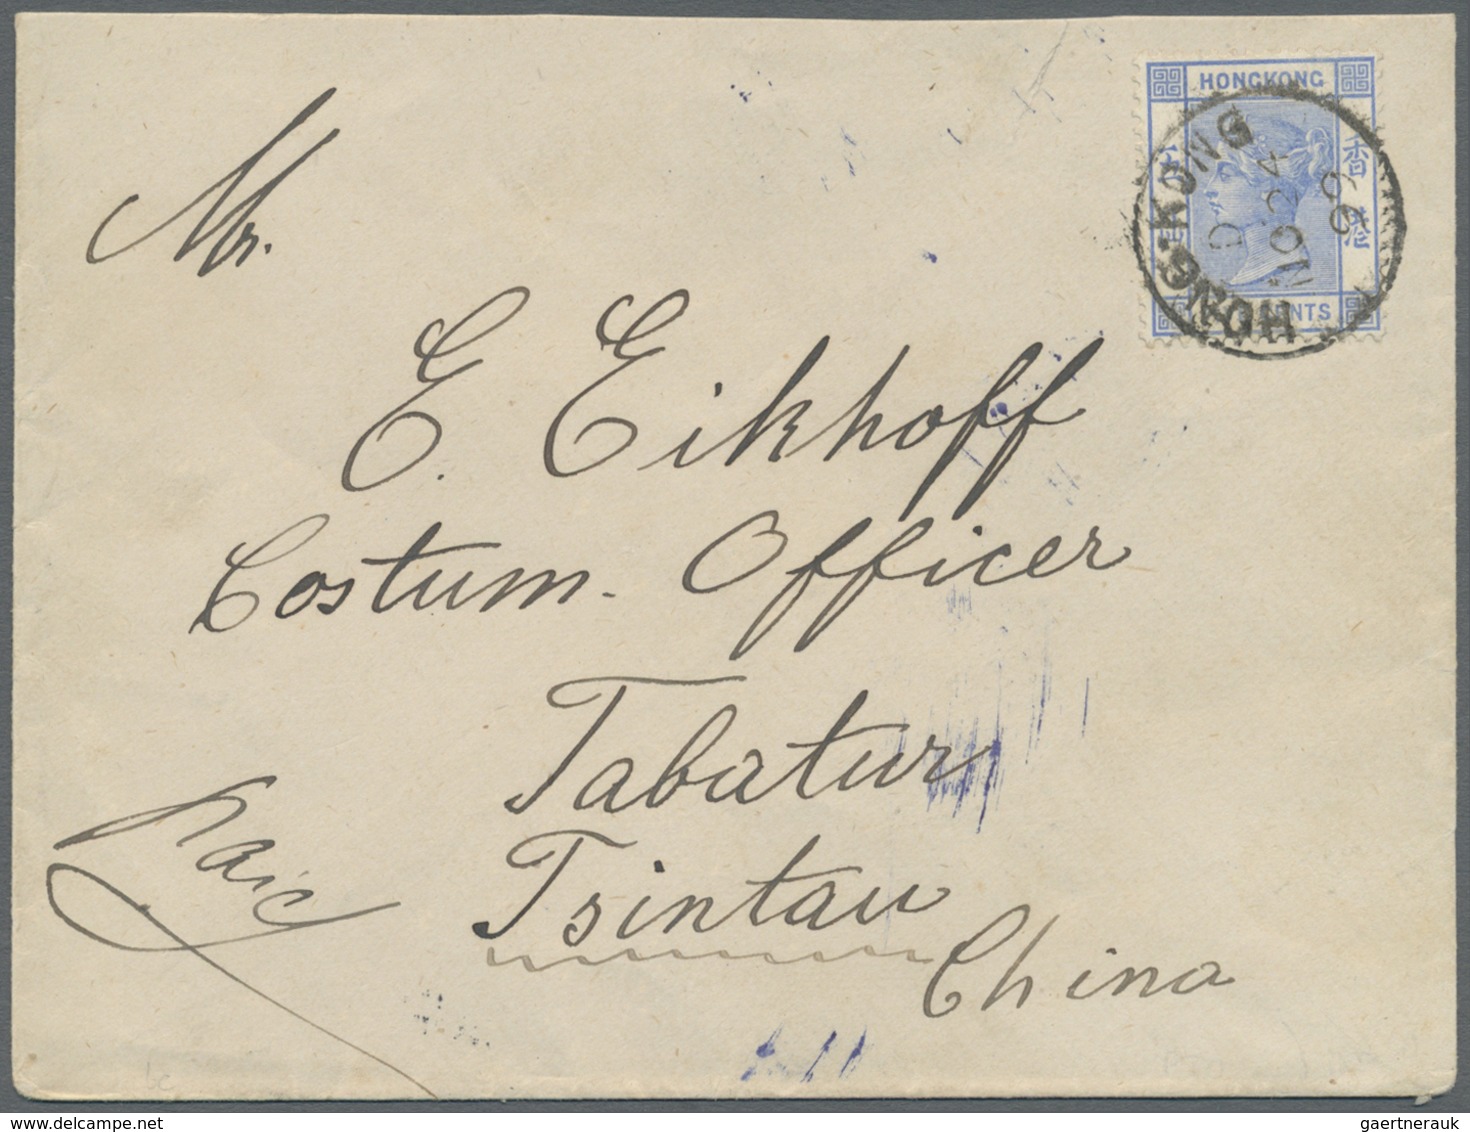 HONGKONG
香港
CENTS
HONG·KONG
D
NO 24
99
Mr.
E. Eikhoff
Costum. Officer
Tabatur
Tsintau
China
gaertnerauk